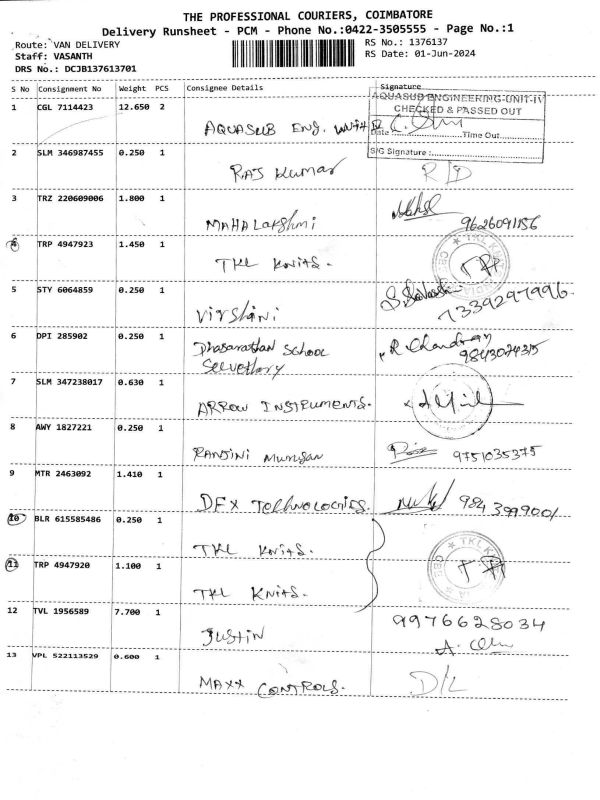 THE PROFESSIONAL COURIERS, COIMBATORE
Delivery Runsheet - PCM - Phone No.:0422-3505555 - Page No.:1
Route: VAN DELIVERY
RS No.: 1376137
Staff: VASANTH
RS Date: 01-Jun-2024
DRS No.: DCJB137613701
S No Consignment No Weight PCS Consignee Details Signature
AQUASUB ENGINEERING-UNIT-IV
1 CGL 7114423 12.650 2
CHECKED & PASSED OUT
AQUASUB ENG. UNIT
Date :............Time Out............
2 SLM 346987455 0.250 1
S/G Signature :............
RAJ Kumar R/D
3 TRZ 220609006 1.800 1
MAHA Lakshmi 9626091156
4 TRP 4947923 1.450 1
TKL Knits.
5 STY 6064859 0.250 1
Virshini 7339297996
6 DPI 285902 0.250 1
Dhasarathan School R Chandran
9843024315
7 SLM 347238017 0.630 1
ARROW INSTRUMENTS.
8 AWY 1827221 0.250 1
RANJINI Murugan 9751035375
9 MTR 2463092 1.410 1
DFX Technologies.
10 BLR 615585486 0.250 1
TKL Knits.
11 TRP 4947920 1.100 1
TKL Knits.
12 TVL 1956589 7.700 1
Justin 9976628034
13 VPL 522113529 0.600 1
MAXX CONTROLS. D/L